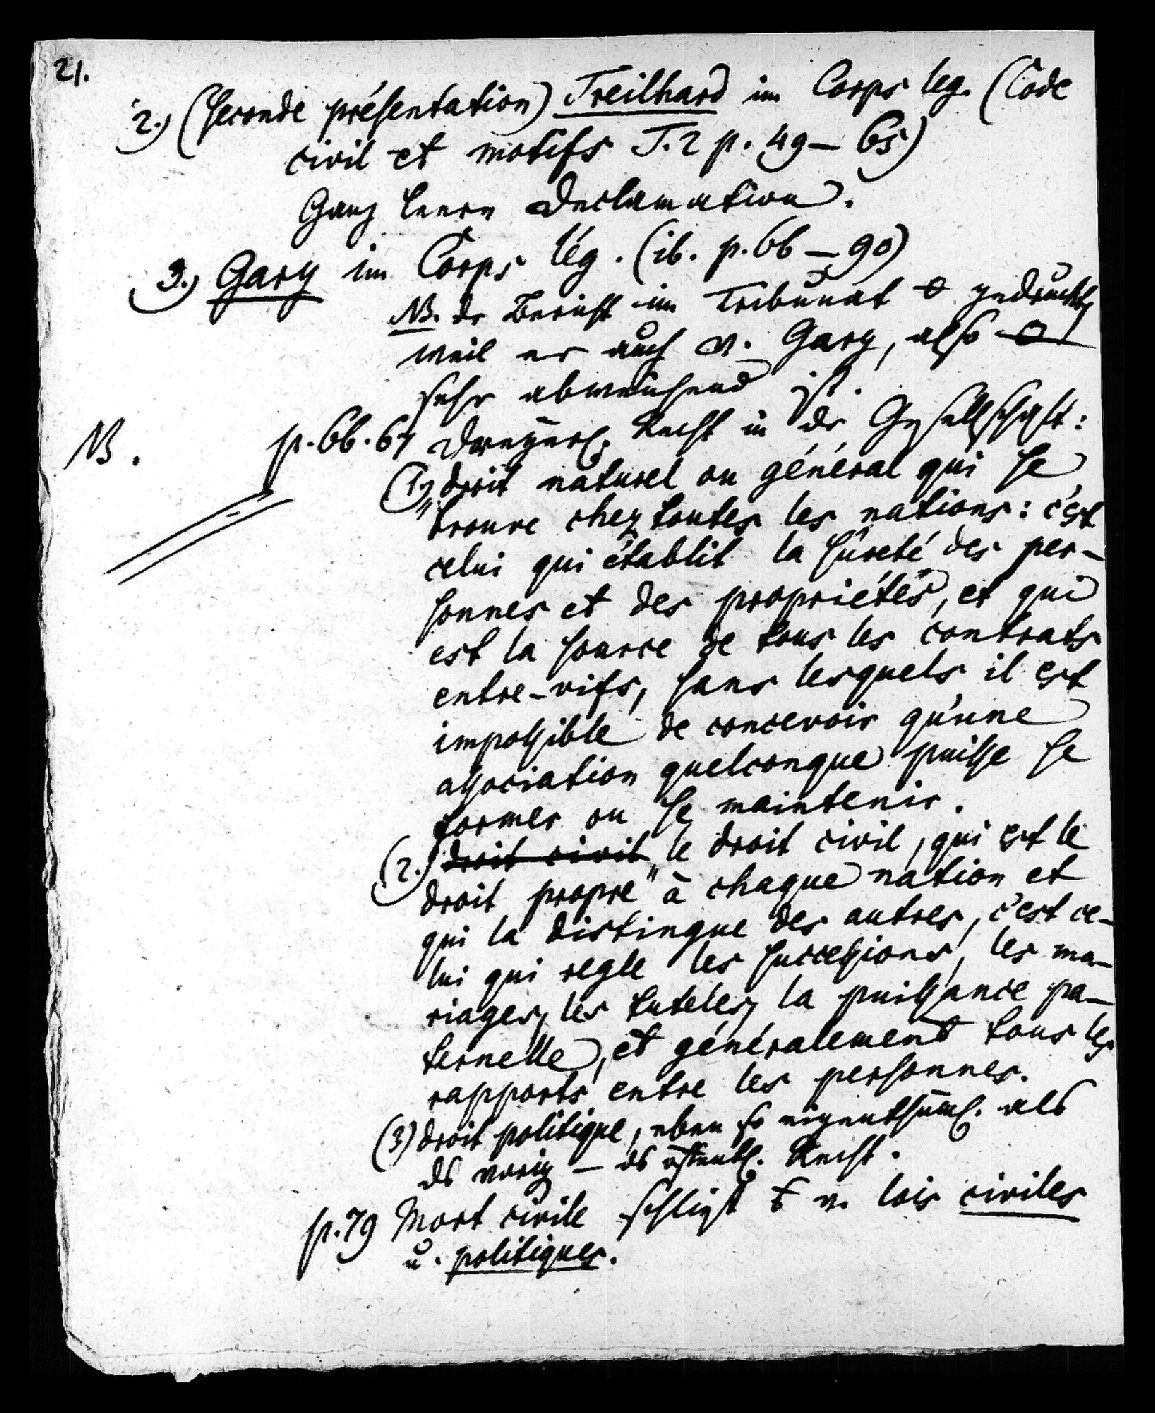 21.
2.) (seconde présentation) Treilhard im Corps leg. (Code
civil et motifs T. 2 p. 49 – 65)
Ganz leere Declamation.
3.) Gary im Corps lég. (ib. p. 66 – 90)
NB. dr Bericht im Tribunat 0 gedruckt,
weil er auch v. Gary, also
sehr abweichend ist.
NB. p. 66. 67 Dreyerl. Recht in dr Gesellschaft:
(1.) "droit naturel ou général qui se
trouve chez toutes les nations: c'est
celui qui établit la sûreté des per-
sonnes et des propriétés, et qui
est la source de tous les contrats
entre-vifs, sans lesquels il est
impossible de concevoir qu'une
association quelconque puisse se
former ou se maintenir.
(2.) droit civil le droit civil, qui est le
droit propre à chaque nation et
qui la distingue des autres, c'est ce-
lui qui regle les successions, les ma-
riages, les tuteles, la puissance pa-
ternelle, et généralement tous les
rapports entre les personnes.
(3) droit politique, eben so eigenthüml. als
ds vorig – ds öffentl. Recht.
p. 79 Mort civile schließt v. lois civiles
u. politiques.